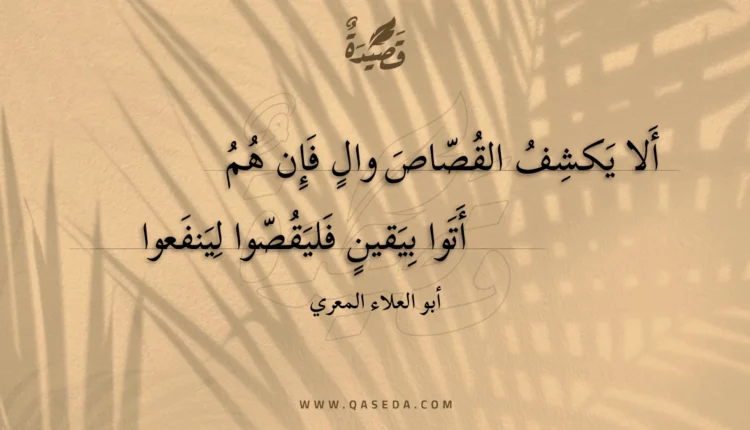 قَصِيدَةٌ
أَلا يَكشِفُ القُصّاصَ والٍ فَإِن هُمُ
أَتَوا بِيَقينٍ فَليَقُصّوا لِيَنفَعوا
أبو العلاء المعري
WWW.QASEDA.COM